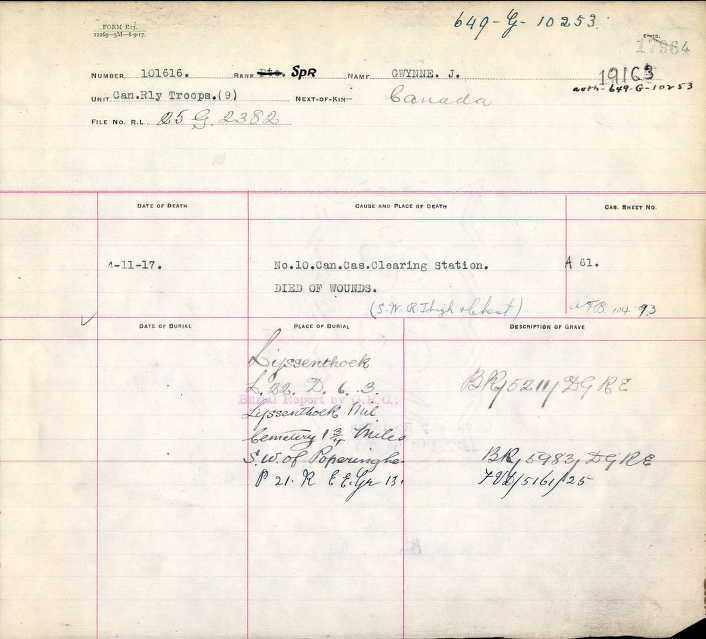 FORM R17.
649-G-10253.
17964
NUMBER 101616. RANK Pte. SPR NAME GWYNNE. J.
19163
auth-649-G-10253
UNIT Can.Rly Troops.(9) NEXT-OF-KIN Canada
FILE No. R.L. 25 G 2382
DATE OF DEATH CAUSE AND PLACE OF DEATH CAS. SHEET NO.
4-11-17. No.10.Can.Cas.Clearing Station. A 61.
DIED OF WOUNDS.
(S.W. R.Thigh & Chest) 104 93
DATE OF BURIAL PLACE OF BURIAL DESCRIPTION OF GRAVE
Lijssenthoek
L. 22. D. 6. 3. BR/5211/DGRE
Burial Report by
Lyssenthoek Mil.
Cemetery 1 3/4 Miles
S.W. of Poperinghe. BR/5983/DGRE
P 21. R E E. Gr 13. /5161/25